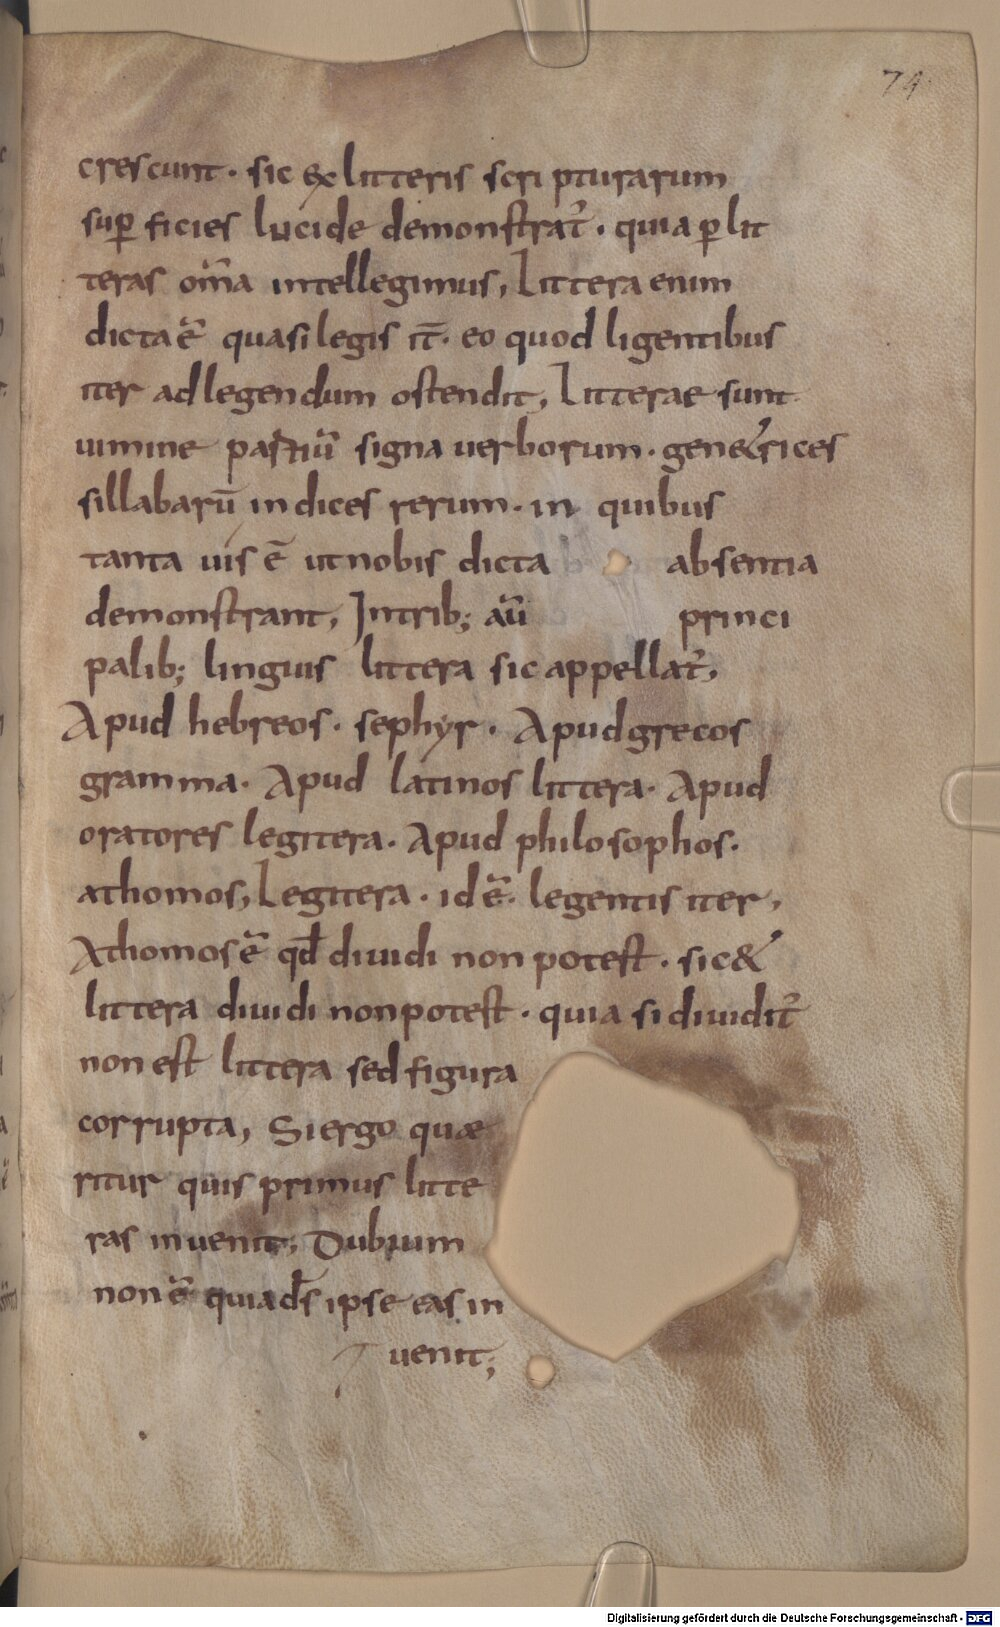 74
crescunt. sic ex litteris scripturarum
sup̱ ficies lucide demonstrat᷑. quia p̱ lit
teras om̅a intellegimus, Littera enim
dicta e̅ quasi legis it̅. eo quod ligentibus
iter ad legendum ostendit, Litterae sunt
uimine partiu̅ signa uerborum. gene&rices
sillabaru̅ indices rerum. in quibus
tanta uis e̅ ut nobis dicta absentia
demonstrant, Intrib; au̅ princi
palib; linguis littera sic appellat᷑,
Apud hebreos. sephyr. Apud grecos
gramma. Apud latinos littera. Apud
oratores legitera. Apud philosophos.
athomos, Legitera. id e̅. legentis iter,
Athomos e̅ qd̅ diuidi non potest. sic &
littera diuidi non potest. quia si diuidit᷑
non est littera sed figura
corrupta, Si ergo quae
ritur quis primus litte
ras inuenit, Dubium
non e̅ quia ds̅ ipse eas in
uenit;
Digitalisierung gefördert durch die Deutsche Forschungsgemeinschaft - DFG